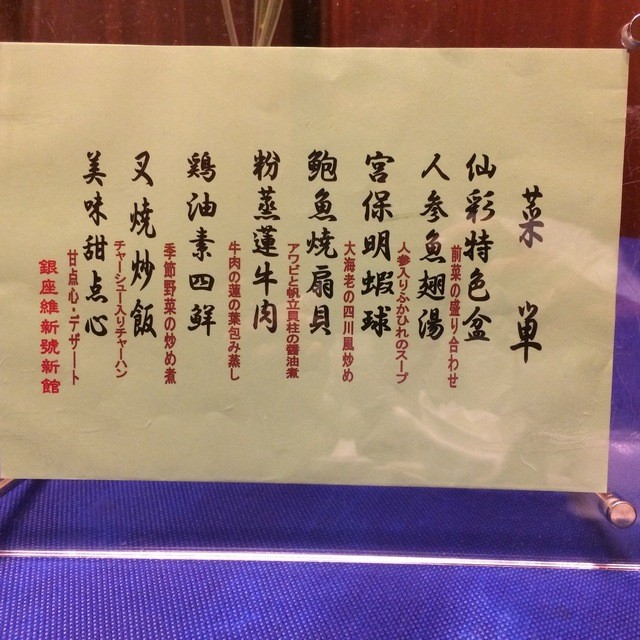 菜単
仙彩特色盆
前菜の盛り合わせ
人参魚翅湯
人参入りふかひれのスープ
宮保明蝦球
大海老の四川風炒め
鮑魚焼扇貝
アワビと帆立貝柱の醤油煮
粉蒸蓮牛肉
牛肉の蓮の葉包み蒸し
鶏油素四鮮
季節野菜の炒め煮
叉焼炒飯
チャーシュー入りチャーハン
美味甜点心
甘点心・デザート
銀座維新號新館